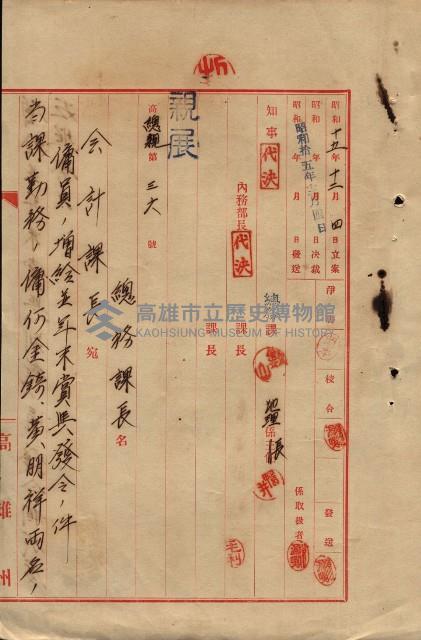 昭和十五年十二月四日立案
昭和 年 月 日決裁
昭和 年 月 日發送
昭和拾五年 月四日
淨書
校合
發送
係取扱者
知事 代決
內務部長 代決
總務課
課長
地理係長
毛利
課長
親展
高總親第三六號
總務課長名
会計課長宛
傭員ノ增給並年末賞與發令ノ件
当課勤務ノ傭何金錡、黃明祥両名ノ
高雄州
高雄市立歷史博物館
KAOHSIUNG MUSEUM OF HISTORY